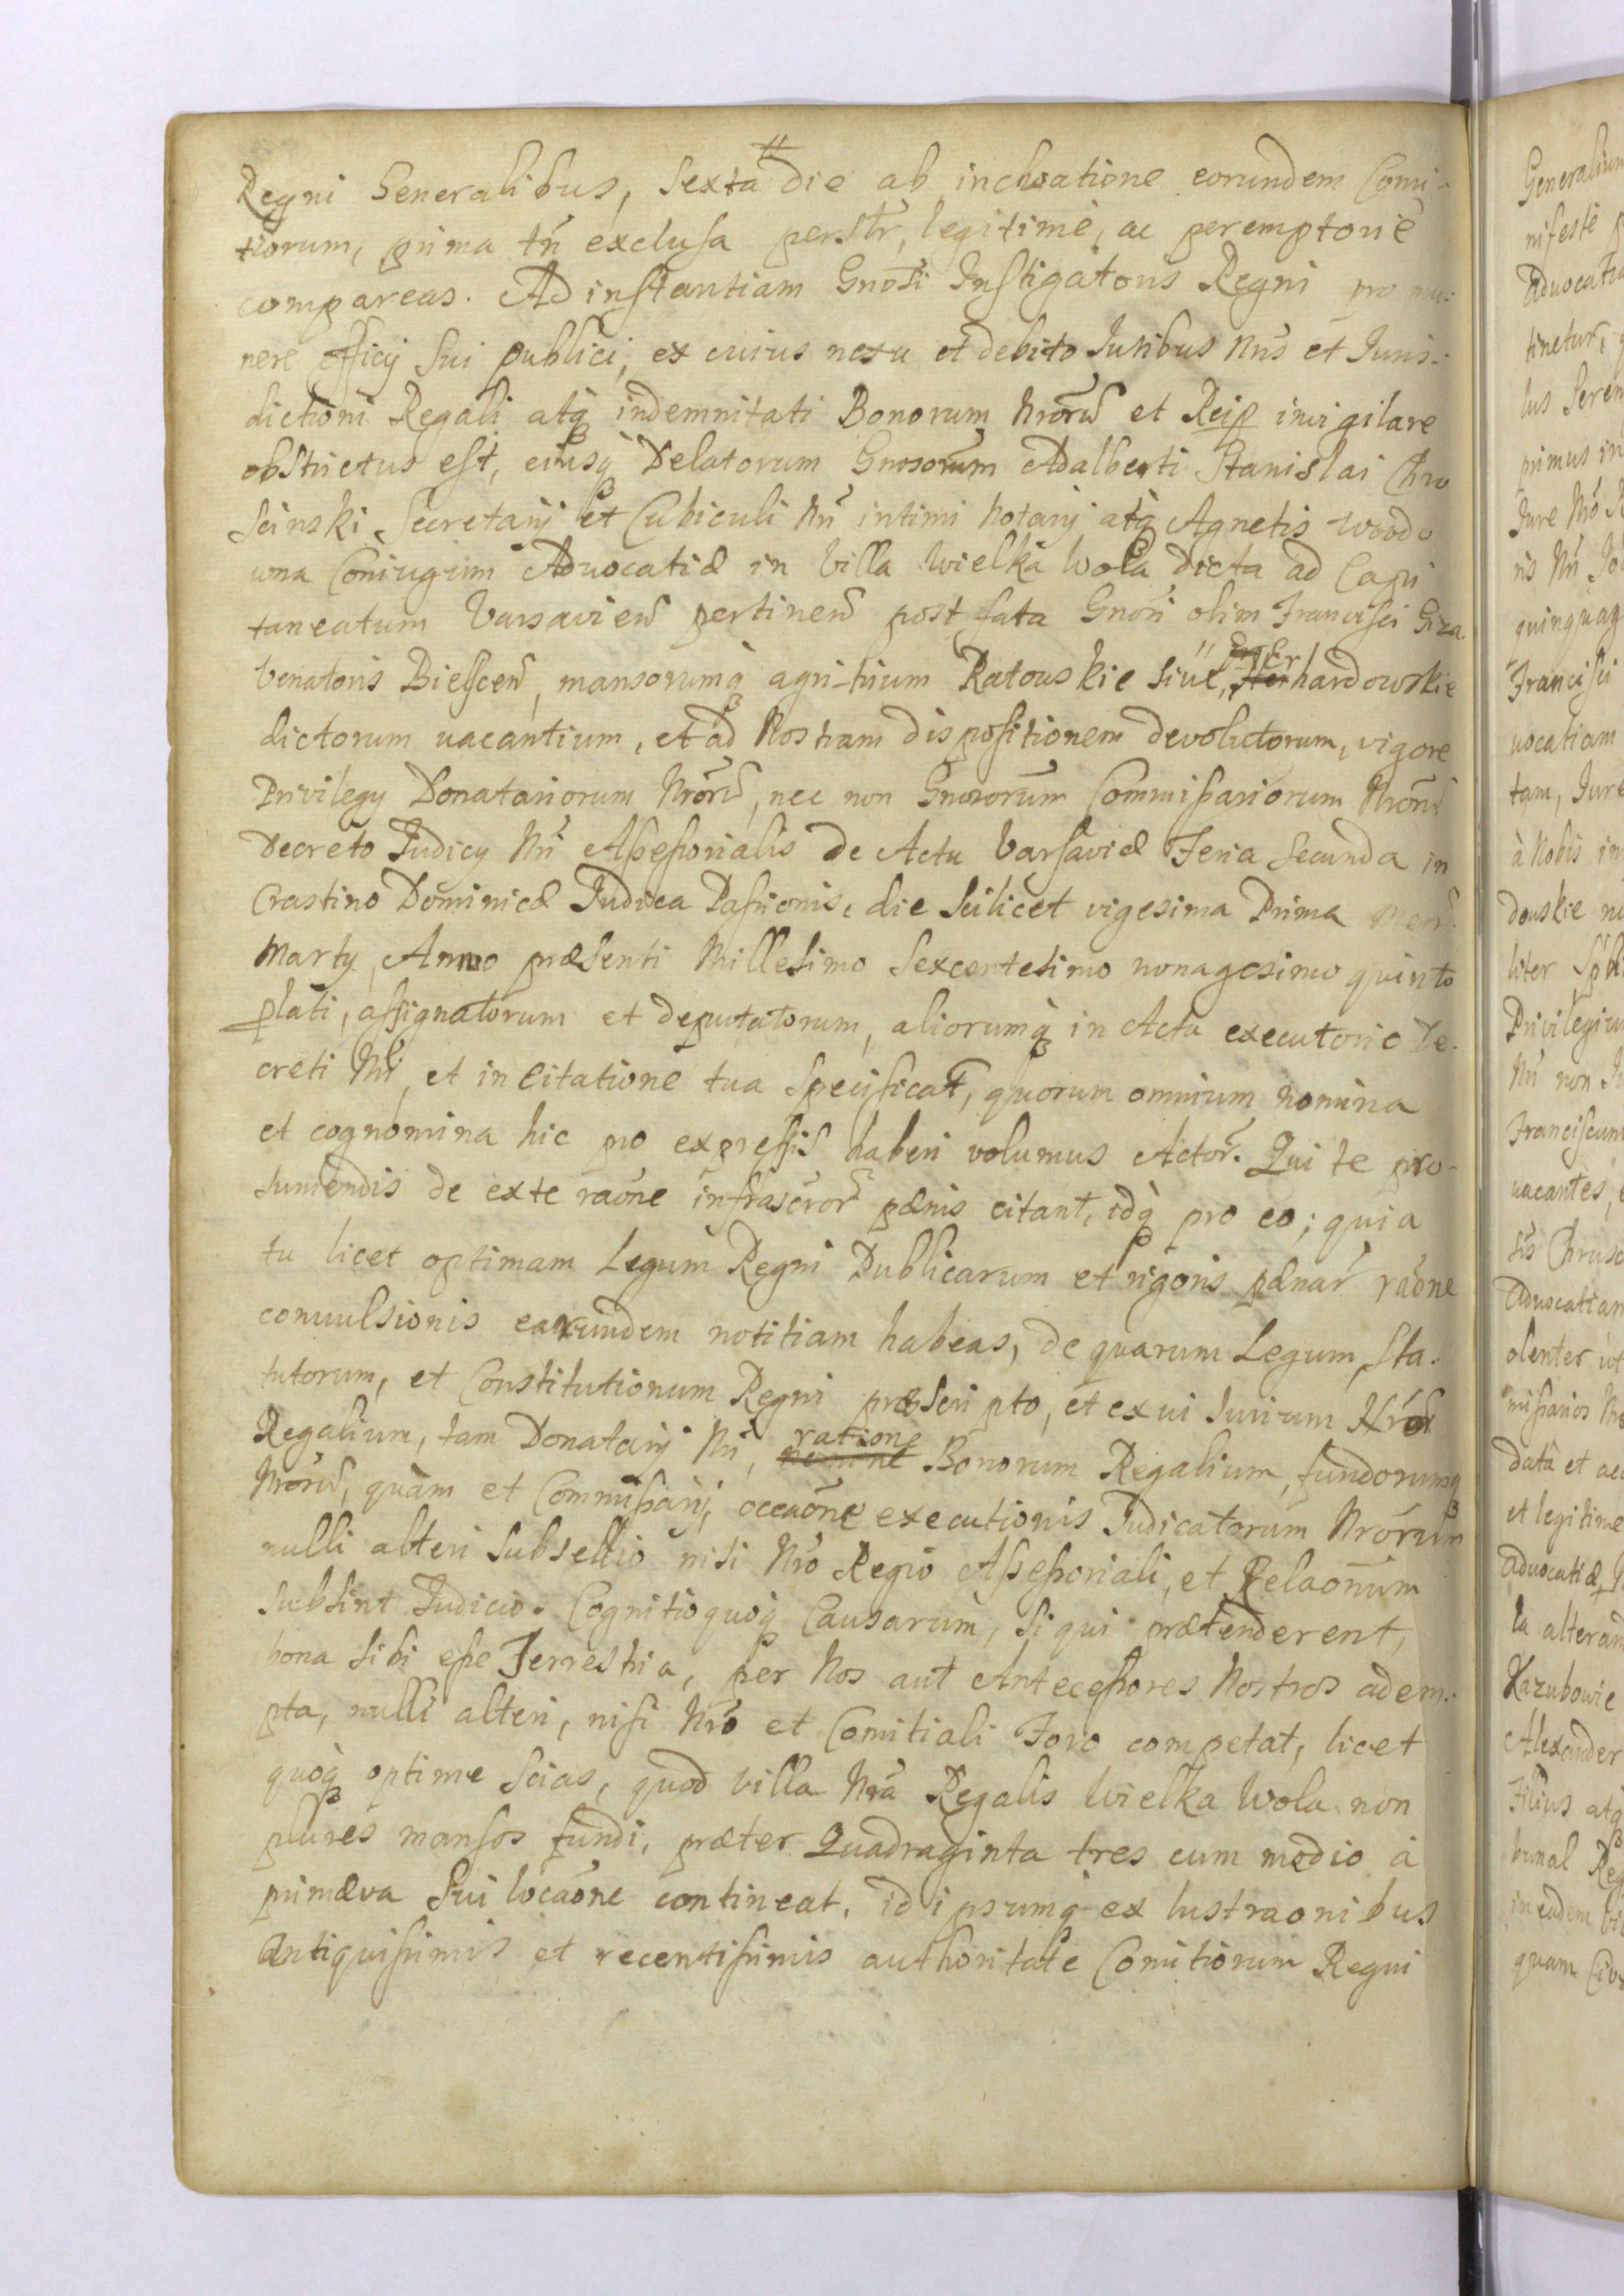 Regni Generalibus, Sexta die ab inchoatione eorundem Comi-
tiorum, prima tñ exclusa perslr, legitimè, ac peremptoriè
compareas. Ad instantiam Gnosi Instigatoris Regni pro mu:
nere officij sui publici, ex cuius nexu et debito Juribus Nris et Juris:
dictioni Regali atq indemnitati Bonorum Nrorũ et Reip invigilare
obstrictus est, eiusq Delatorum Gnosorum Adalberti Stanislai Chro
scinski Secretarij et Cubiculi Nri intimi Notarij atq Agnetis Woodo
wna Coniugum Advocatiæ in Villa Wielka Wola dicta ad Capi
taneatum Varsavien pertinen post fata Gnosi olim Francisci Giza.
Venatoris Bielscen, mansorumq agri trium Ratouskie siue, Gerhardowskie
dictorum uacantium, et ad Nostram dispositionem devolutorum, vigore
Privilegy Donatariorum Nrorũ, nec non Gnosorum Commissariorum Nrorũ
Decreto Judicy Nri Assessorialis de Actu Varsaviæ Feria Secunda in
Crastino Dominicæ Judica Passionis, die scilicet vigesima Prima Men.
Marty, Anno præsenti Millesimo Sexcentesimo nonagesimo quinto
plati, assignatorum et deputatorum, aliorumq in Actu executorio De-
creti Nri, et in Citatione tua specificat, quorum omnium nomina
et cognomina hic pro expressis haberi volumus Actor. Qui te pro-
sumendis de exte raõne infrascror pænis citant, idq pro eo; quia
tu licet optimam Legum Regni Publicarum et rigoris pænar raõne
convulsionis earundem notitiam habeas, de quarum Legum, Sta.
tutorum, et Constitutionum Regni præscripto, et ex ui Jurium Nror
Regalium, tam Donatarij Nri, ratione Bonorum Regalium, fundorumq
Nrorũ, quàm et Commissarij, occaõne executionis Judicatorum Nrorum
nulli alteri Subsellio nisi Nro Regio Assessoriali, et Relaonum
subsint Judicio. Cognitio quoq Causarum, si qui prætenderent,
bona sibi esse Terrestria, per Nos aut Antecessores Nostros adem:
pta, nulli alteri, nisi Nro et Comitiali Foro competat, licet
quoq optime Scias, quod Villa Nra Regalis Wielka Wola non
plures mansos fundi, præter Quadraginta tres cum medio à
primæva Sui locaõne contineat, id ipsumq ex lustraonibus
Antiquissimis et recentissimis authoritate Comitiorum Regni